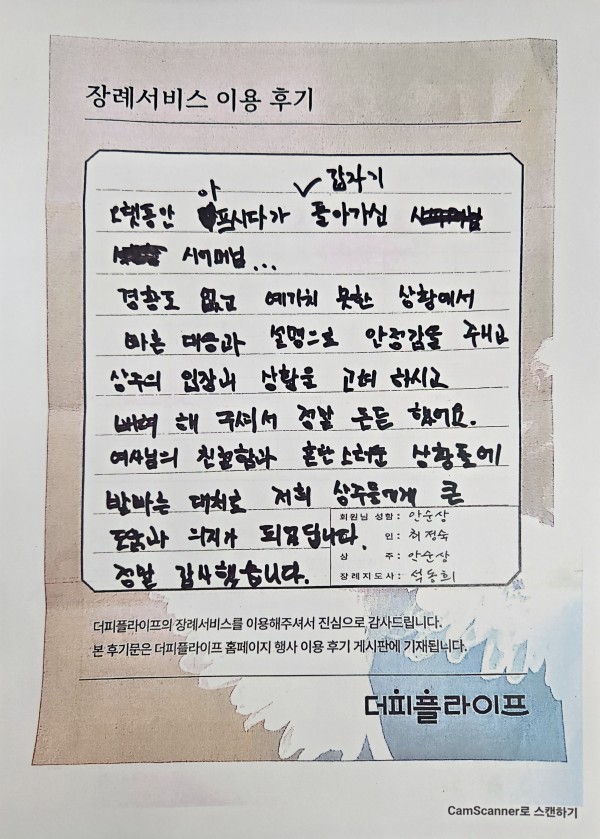 장례서비스 이용 후기
아 ✓ 갑자기
오랫동안 프시다가 돌아가신
시어머님...
경황도 없고 예기치 못한 상황에서
빠른 대응과 설명으로 안정감을 주시고
상주의 입장과 상황을 고려 하시고
배려 해 주셔서 정말 든든 했어요.
여사님의 친절함과 혼란스러운 상황들에
발빠른 대처로 저희 상주들에게 큰
도움과 의지가 되었답니다.
정말 감사했습니다.
회원님 성함 : 안순상
인 : 최정숙
상 주 : 안순상
장례지도사 : 석동희
더피플라이프의 장례서비스를 이용해주셔서 진심으로 감사드립니다.
본 후기문은 더피플라이프 홈페이지 행사 이용 후기 게시판에 기재됩니다.
더피플라이프
CamScanner로 스캔하기